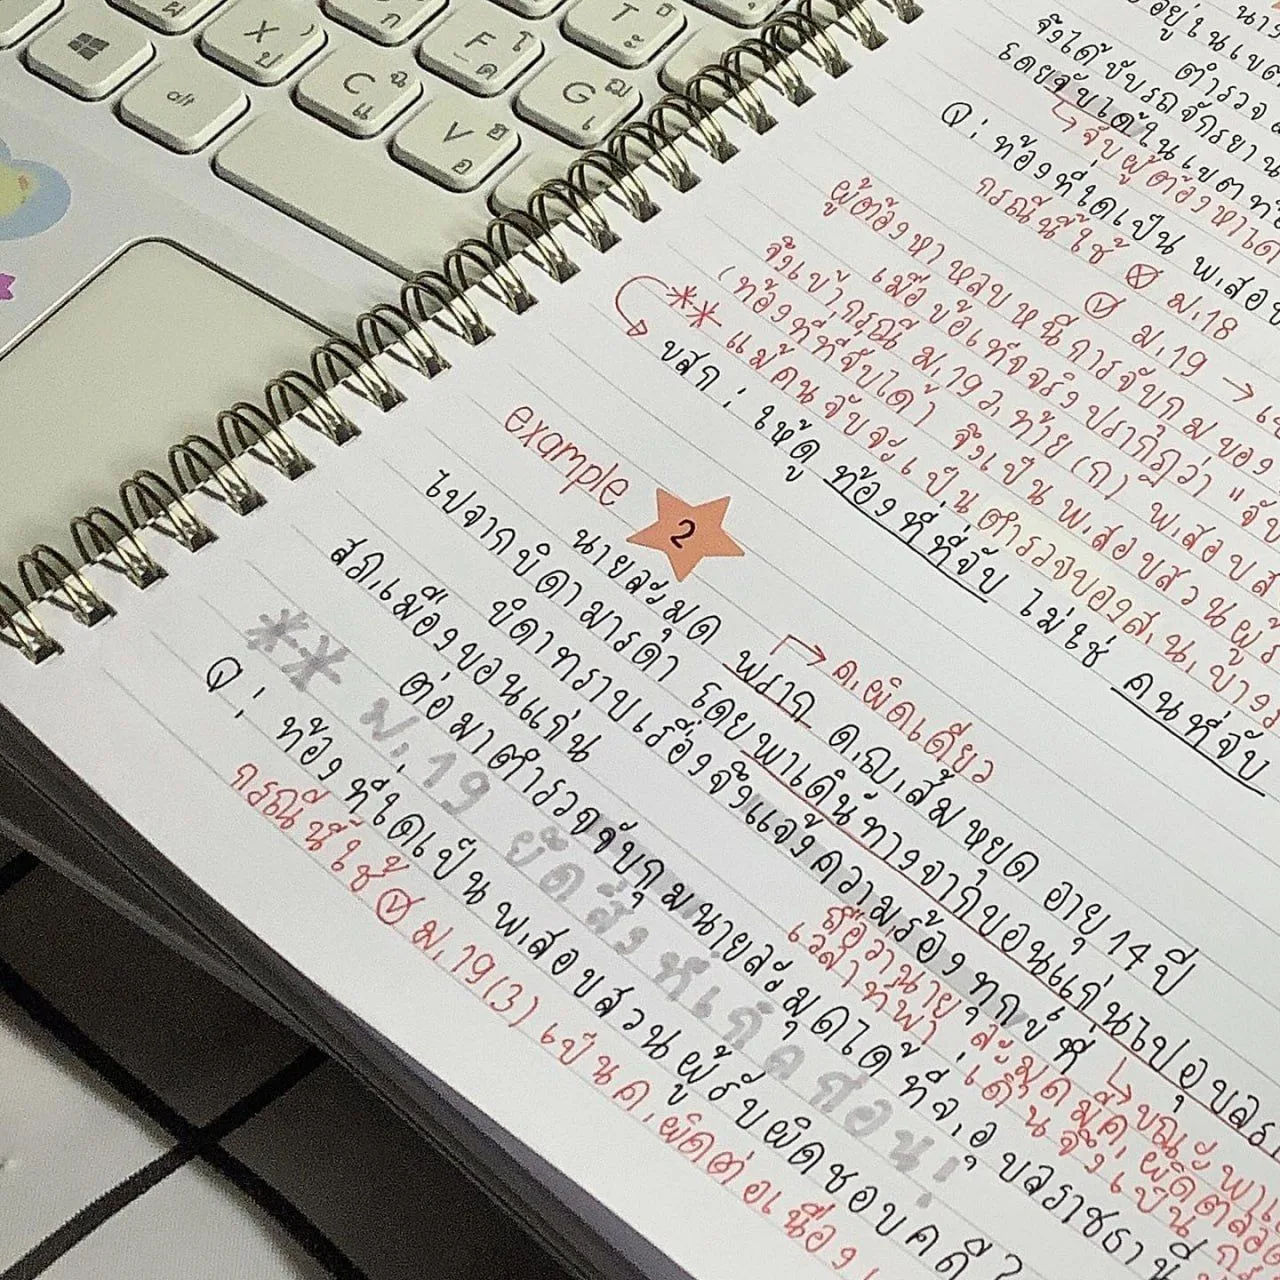 อยู่ในเขต
ตำรวจ
จึงได้ขับรถจักรยาน
โดยจับได้ในเขตท
↳ จับผู้ต้องหาได้
Q : ท้องที่ใดเป็น พ.สอบ
กรณีนี้ใช้ ⊗ ม.18
ม.19 →
ผู้ต้องหาหลบหนีการจับกุมของ
เมื่อข้อเท็จจริงปรากฏว่า "จับ
จึงเข้ากรณี ม.19 ว.ท้าย (ก) พ.สอบส
(ท้องที่ที่จับได้) จึงเป็น พ.สอบสวนผู้
** แม้คนจับจะเป็นตำรวจของ ส.น. บาง
ขสก : ให้ดู ท้องที่ที่จับ ไม่ใช่ คนที่จับ
example 2
→ ค.ผิดเดียว
นายละมุด พราก ด.ญ.ส้มหยุด อายุ 14 ปี
ไปจากบิดามารดา โดยพาเดินทางจากขอนแก่นไปอุบลรา
↳ ขณะพา
บิดาทราบเรื่องจึงแจ้งความร้องทุกข์ที่
สภ.เมืองขอนแก่น
ถือว่านายละมุดมีค.ผิดตลอด
เวลาที่พา เดินจึงเป็น
ต่อมาตำรวจจับกุมนายละมุดได้ที่ จ.อุบลราชธานี
** ม.19 ยึดสิ่งที่เกิดก่อน!
Q : ท้องที่ใดเป็น พ.สอบสวนผู้รับผิดชอบคดี ?
กรณีนี้ใช้ ✓ ม.19(3) เป็น ค.ผิดต่อเนื่อง
X
ป
C
ฉ
แ
V
ฮ
อ
F
โ
ด
G
ฌ
เ
T
ธ
ะ
alt